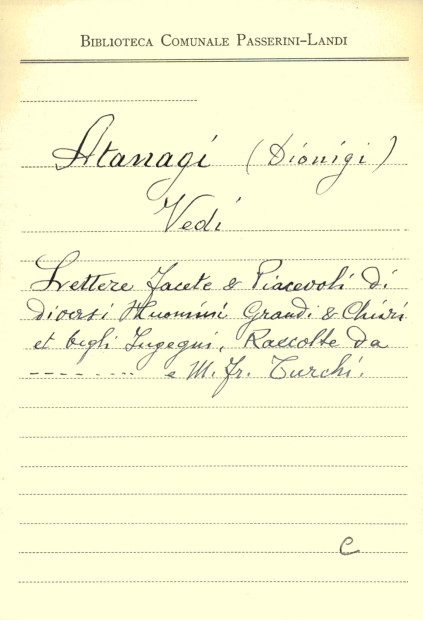 BIBLIOTECA COMUNALE PASSERINI-LANDI
Atanagi (Dionigi)
Vedi
Lettere facete & Piacevoli di
diversi Huomini Grandi & Chiari
et begli Ingegni, Raccolte da
- - - - - - - e M. Fr. Turchi.
C